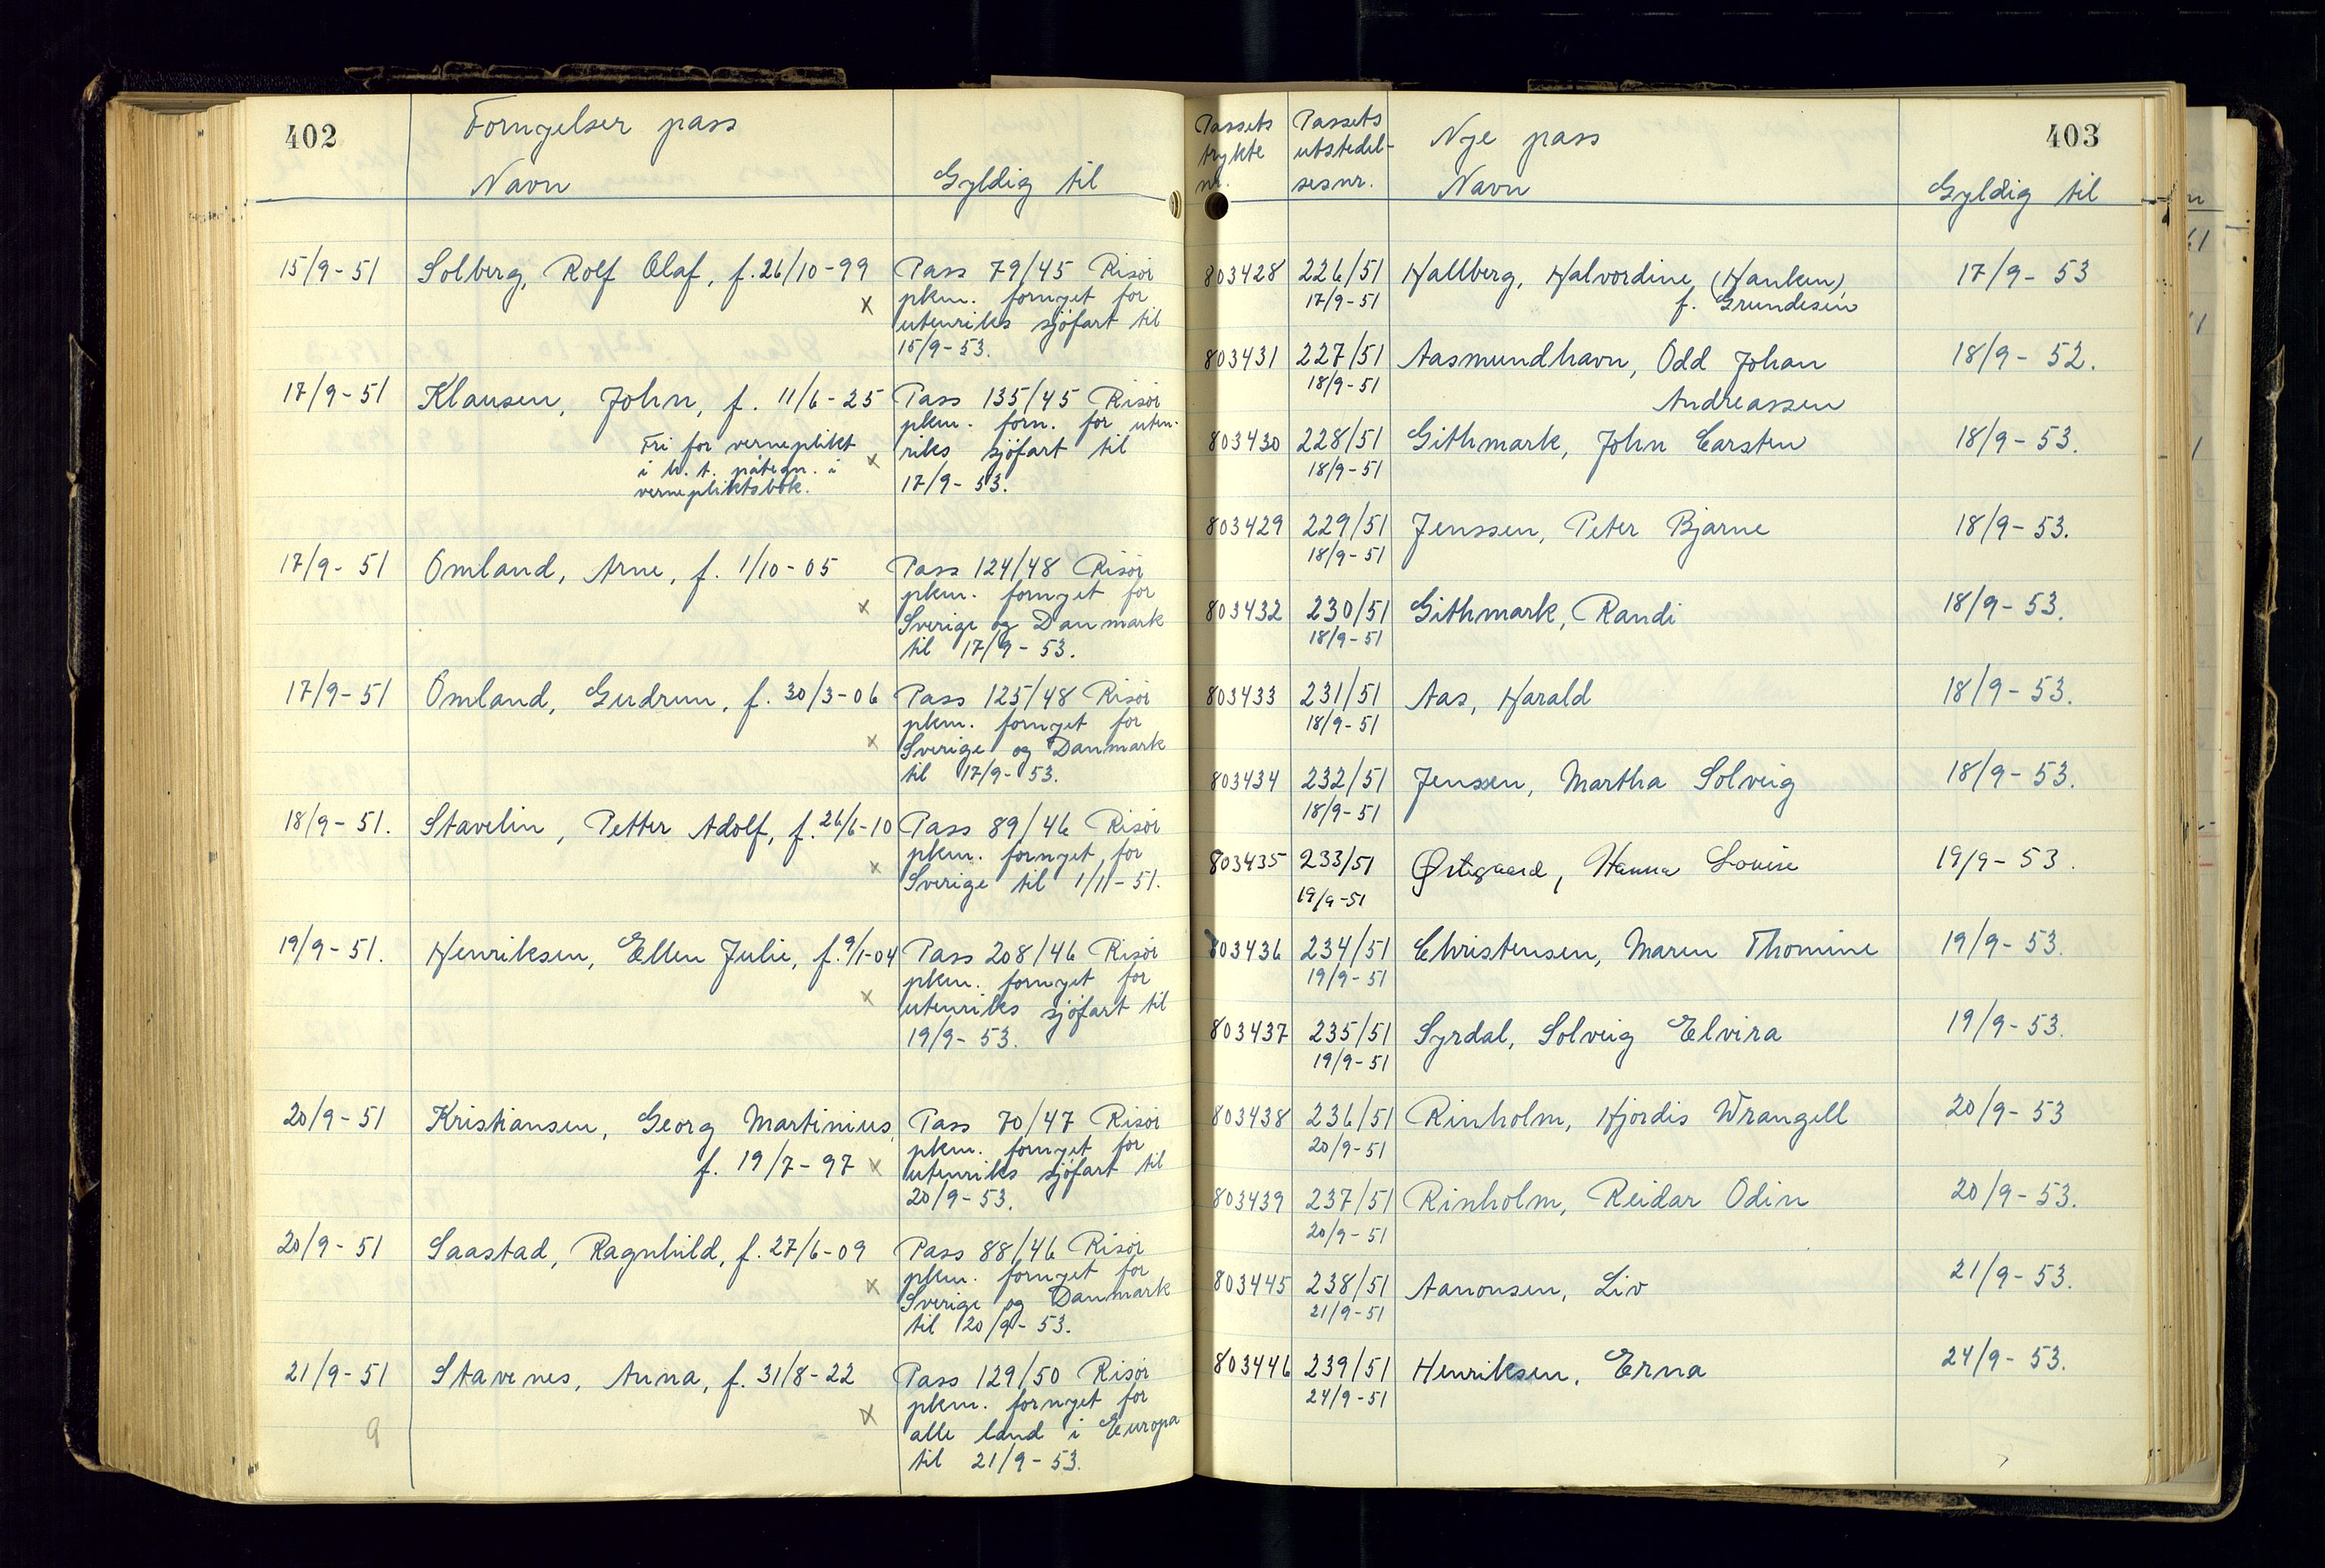 402
Fornyelser pass
Navn
Gyldig til
15/9-51 Solberg, Rolf Olaf, f. 26/10-99 Pass 79/45 Risör
x pkm. fornyet for
utenriks sjöfart til
15/9-53.
17/9-51 Klausen, John, f. 11/6-25 Pass 135/45 Risör
pkm. forn. for uten-
Fri for verneplikt riks sjöfart til
i h. t. påtegn. i x
vernepliktsbok. 17/9-53.
17/9-51 Omland, Arne, f. 1/10-05 Pass 124/48 Risör
x pkm. fornyet for
Sverige og Danmark
til 17/9-53.
17/9-51 Omland, Gudrun, f. 30/3-06 Pass 125/48 Risör
pkm. fornyet for
x Sverige og Danmark
til 17/9-53.
18/9-51. Stavelin, Petter Adolf, f. 26/6-10 Pass 89/46 Risör
x pkm. fornyet for
Sverige til 1/11-51.
19/9-51. Henriksen, Ellen Julie, f. 9/1-04 Pass 208/46 Risör
pkm. fornyet for
x utenriks sjöfart til
19/9-53.
20/9-51 Kristiansen, Georg Martinius, Pass 70/47 Risör
pkm. fornyet for
f. 19/7-97 x utenriks sjöfart til
20/9-53.
20/9-51 Saastad, Ragnhild, f. 27/6-09 Pass 88/46 Risör
x pkm. fornyet for
Sverige og Danmark
til 20/9-53.
21/9-51 Stavenes, Anna, f. 31/8-22 Pass 129/50 Risör
x pkm. fornyet for
9 alle land i Europa
til 21/9-53.
403
Passets Passets
trykte utstedel- Nye pass
nr. sesnr. Navn Gyldig til
803428 226/51 Hallberg, Halvordine (Hanken), 17/9-53
17/9-51 f. Grundesen
803431 227/51 Aasmundhavn, Odd Johan 18/9-52.
18/9-51 Andreassen
803430 228/51 Githmark, John Carsten 18/9-53.
18/9-51
803429 229/51 Jenssen, Peter Bjarne 18/9-53.
18/9-51
803432 230/51 Githmark, Randi 18/9-53.
18/9-51
803433 231/51 Aas, Harald 18/9-53.
18/9-51
803434 232/51 Jenssen, Martha Solveig 18/9-53.
18/9-51
803435 233/51 Østgaard, Hanna Louise 19/9-53.
19/9-51
803436 234/51 Christensen, Maren Thomine 19/9-53.
19/9-51
803437 235/51 Syrdal, Solveig Elvira 19/9-53.
19/9-51
803438 236/51 Rinholm, Hjördis Wrangell 20/9-53
20/9-51
803439 237/51 Rinholm, Reidar Odin 20/9-53.
20/9-51
803445 238/51 Aanonsen, Liv 21/9-53.
21/9-51
803446 239/51 Henriksen, Erna 24/9-53.
24/9-51